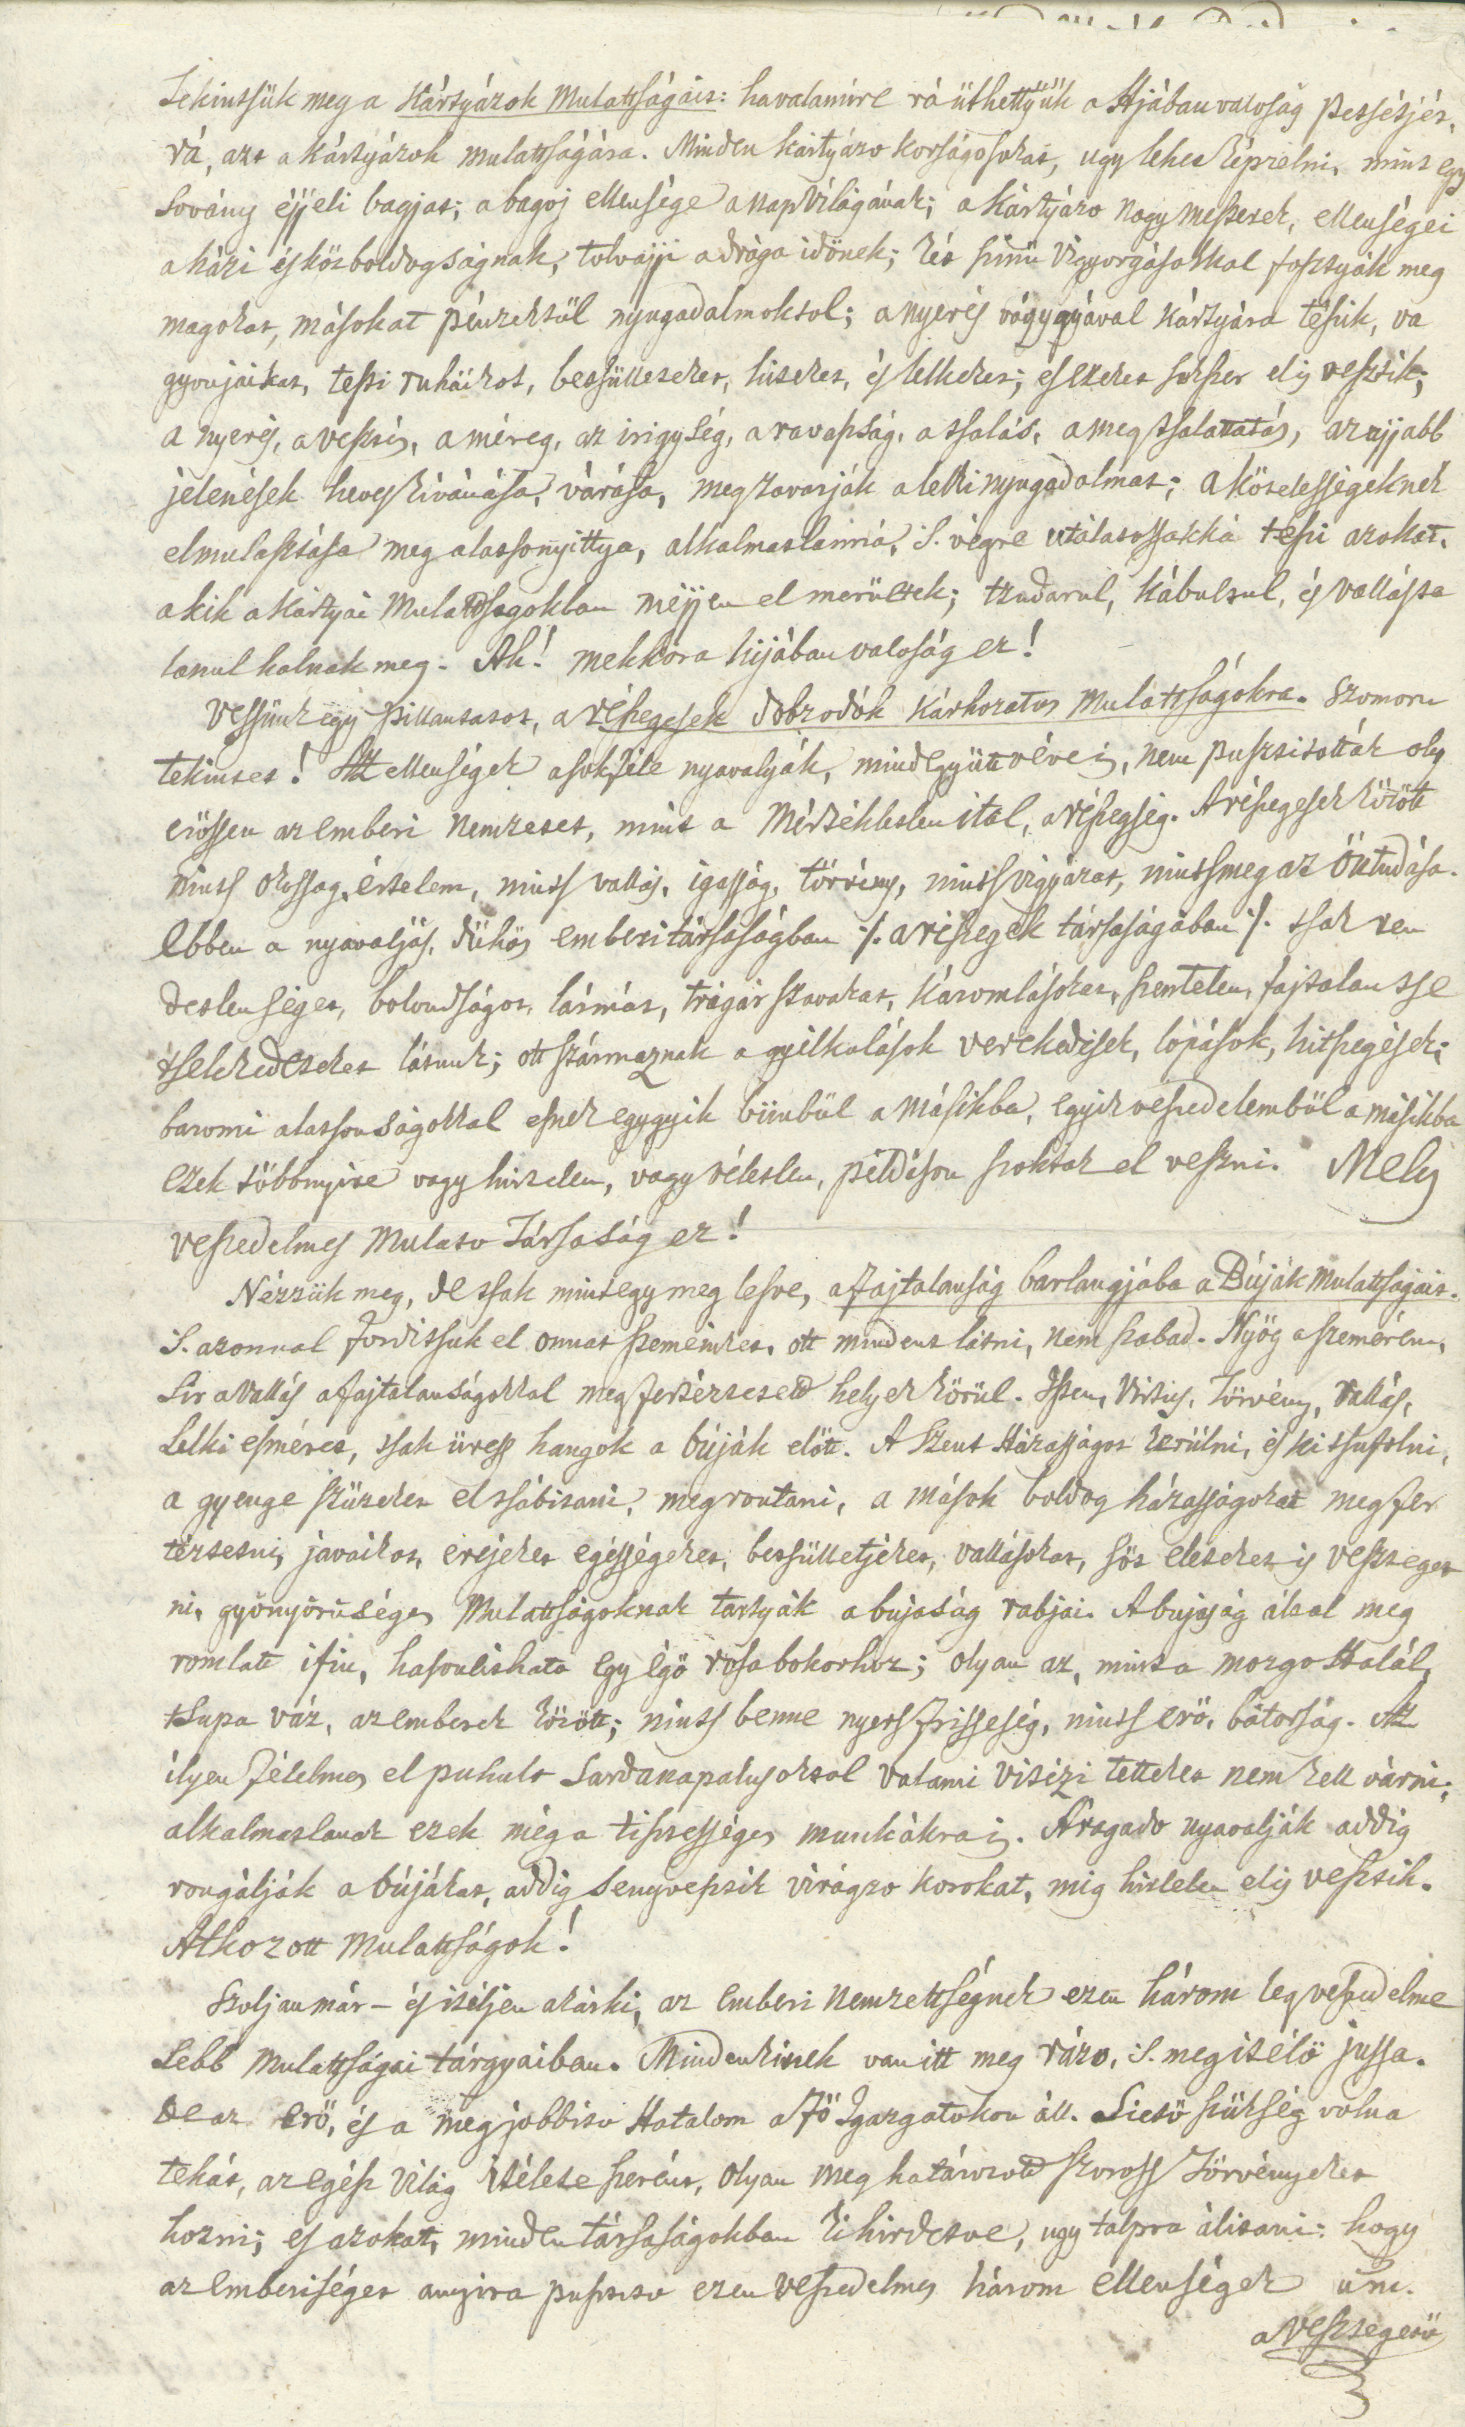 Tekintsük meg a Kártyázok Mulattságait: havalamire rá üthettyük a Hjában valoság petsétjét,
rá, azt a kártyázok mulattságára. Minden kártyázo korságosokat, ugy lehet képzelni, mint egy
sovány éjjeli bagjat; a bagoj ellensége a nap világának; a kártyázo nagy mesterek, ellenségei
a házi és közboldogságnak, tolvajji a drága idönek; két szinü vigyorgásokkal fosztyák meg
magokat, másokat pénzektül nyugadalmoktol; a nyerés vágygyával kártyára teszik, va
gyonjaikat, testi ruháikot, betsülleteket, hiteket, és lelkeket; es ezeket sokszor el is vesztik;
a nyerés, a vesztés, a méreg, az irigység, a ravaszság, a tsalás, a meg tsalattatás, az ujjabb
jelenések heves kivánása, várása, megzavarják a lelki nyugadalmat; a kötelességeknek
elmulasztása meg alatsonyittya, alkalmatlanná, 's végre utálatossakká teszi azokat,
a kik a kártyái Mulattsagokban méjjen el merültek; tzudarul, kábultul, és vallásta
lanul halnak meg. Ah! mekkora hijában valoság ez!
Vessünk egy pillantatot, a részegesek dobzodók kárhozatos mulattságokra. Szomoru
tekintet! Az ellenségek a sokféle nyavalyák, mind együtt véve is, nem pusztitották oly
erössen az emberi nemzetet, mint a Mértékletlen ital, a részegség. A részegesek között
nints okossag, értelem, nints vallás, igasság, törvény, nints vigyázat, nints meg az öntudása.
Ebben a nyavaljás, dühös emberi társaságban /: a részegek társaságában :/ tsak ren
detlenséget, bolondságot, lármát, trágár szavakat, káromlásokat, szentelen, fajtalan tse
tselekedeteket látunk; ott származnak a gyilkolások verekedések, lopások, hitszegések;
baromi alatsonságokkal esnek egygyik bünbül a másikba, egyik veszedelembül a másikba
ezek többnyire vagy hirtelen, vagy véletlen, példáson szoktak el veszni. Mely
veszedelmes Mulato Társaság ez!
Nézzük meg, de tsak mintegy meg lesve, a fajtalanság barlangjába a Búják mulattságait.
's azonnal fordittsuk el onnat szemeinket, ott mindent látni, nem szabad. Nyög a szemérem,
sir a vallás a fajtalanságokkal megfertéztetett helyek körül. Isten, Virtus, Törvény, vallás,
Lelki esméret, tsak üress hangok a búják elött. A Szent Házasságot kerülni, és ki tsufolni,
a gyenge szüzeket el tsábitani, megrontani, a mások boldog házasságokat megfer
téztetni, javaikot, erejeket egésségeket, betsülletjeket, vallásokat, söt életeket is vesztegetni
ni, gyönyörüséges Mulattságoknak tartyák a bujaság rabjai. A bujaság által meg
romlott ifiu, hasonlithato egy égö rosa bokorhoz; olyan az, mint a mozgo Halál,
tsupa váz, az emberek között; nints benne nyers frisseség, nints erö, bátorság. Az
ilyen félelmes el puhult Sardanapalusoktol valami vitézi tetteket nem kell várni;
alkalmatlanok ezek még a tisztességes munkákra is. A ragado nyavalják addig
rongálják a bújákat, addig senyvesztik virágzo korokat, mig hirtelen el is vesztik.
Atkozott Mulattságok!
Szoljan már – és itéljen akárki, az emberi nemzettségnek ezen három legveszedelme
sebb Mulattságai tárgyaiban. Mindenkinek van itt meg rázo, 's megitélö jussa.
de az erö, és a megjobbito Hatalom a Fö Igazgatokon áll. Sietö szükség volna
tehát, az egész világ itélete szerént, olyan meg határozott szoross Törvényeket
hozni; es azokat, minden társaságokban kihirdetve, ugy talpra álitani: hogy
az emberiséget annyira pusztito ezen veszedelmes három ellenségek um.
a vesztegetö